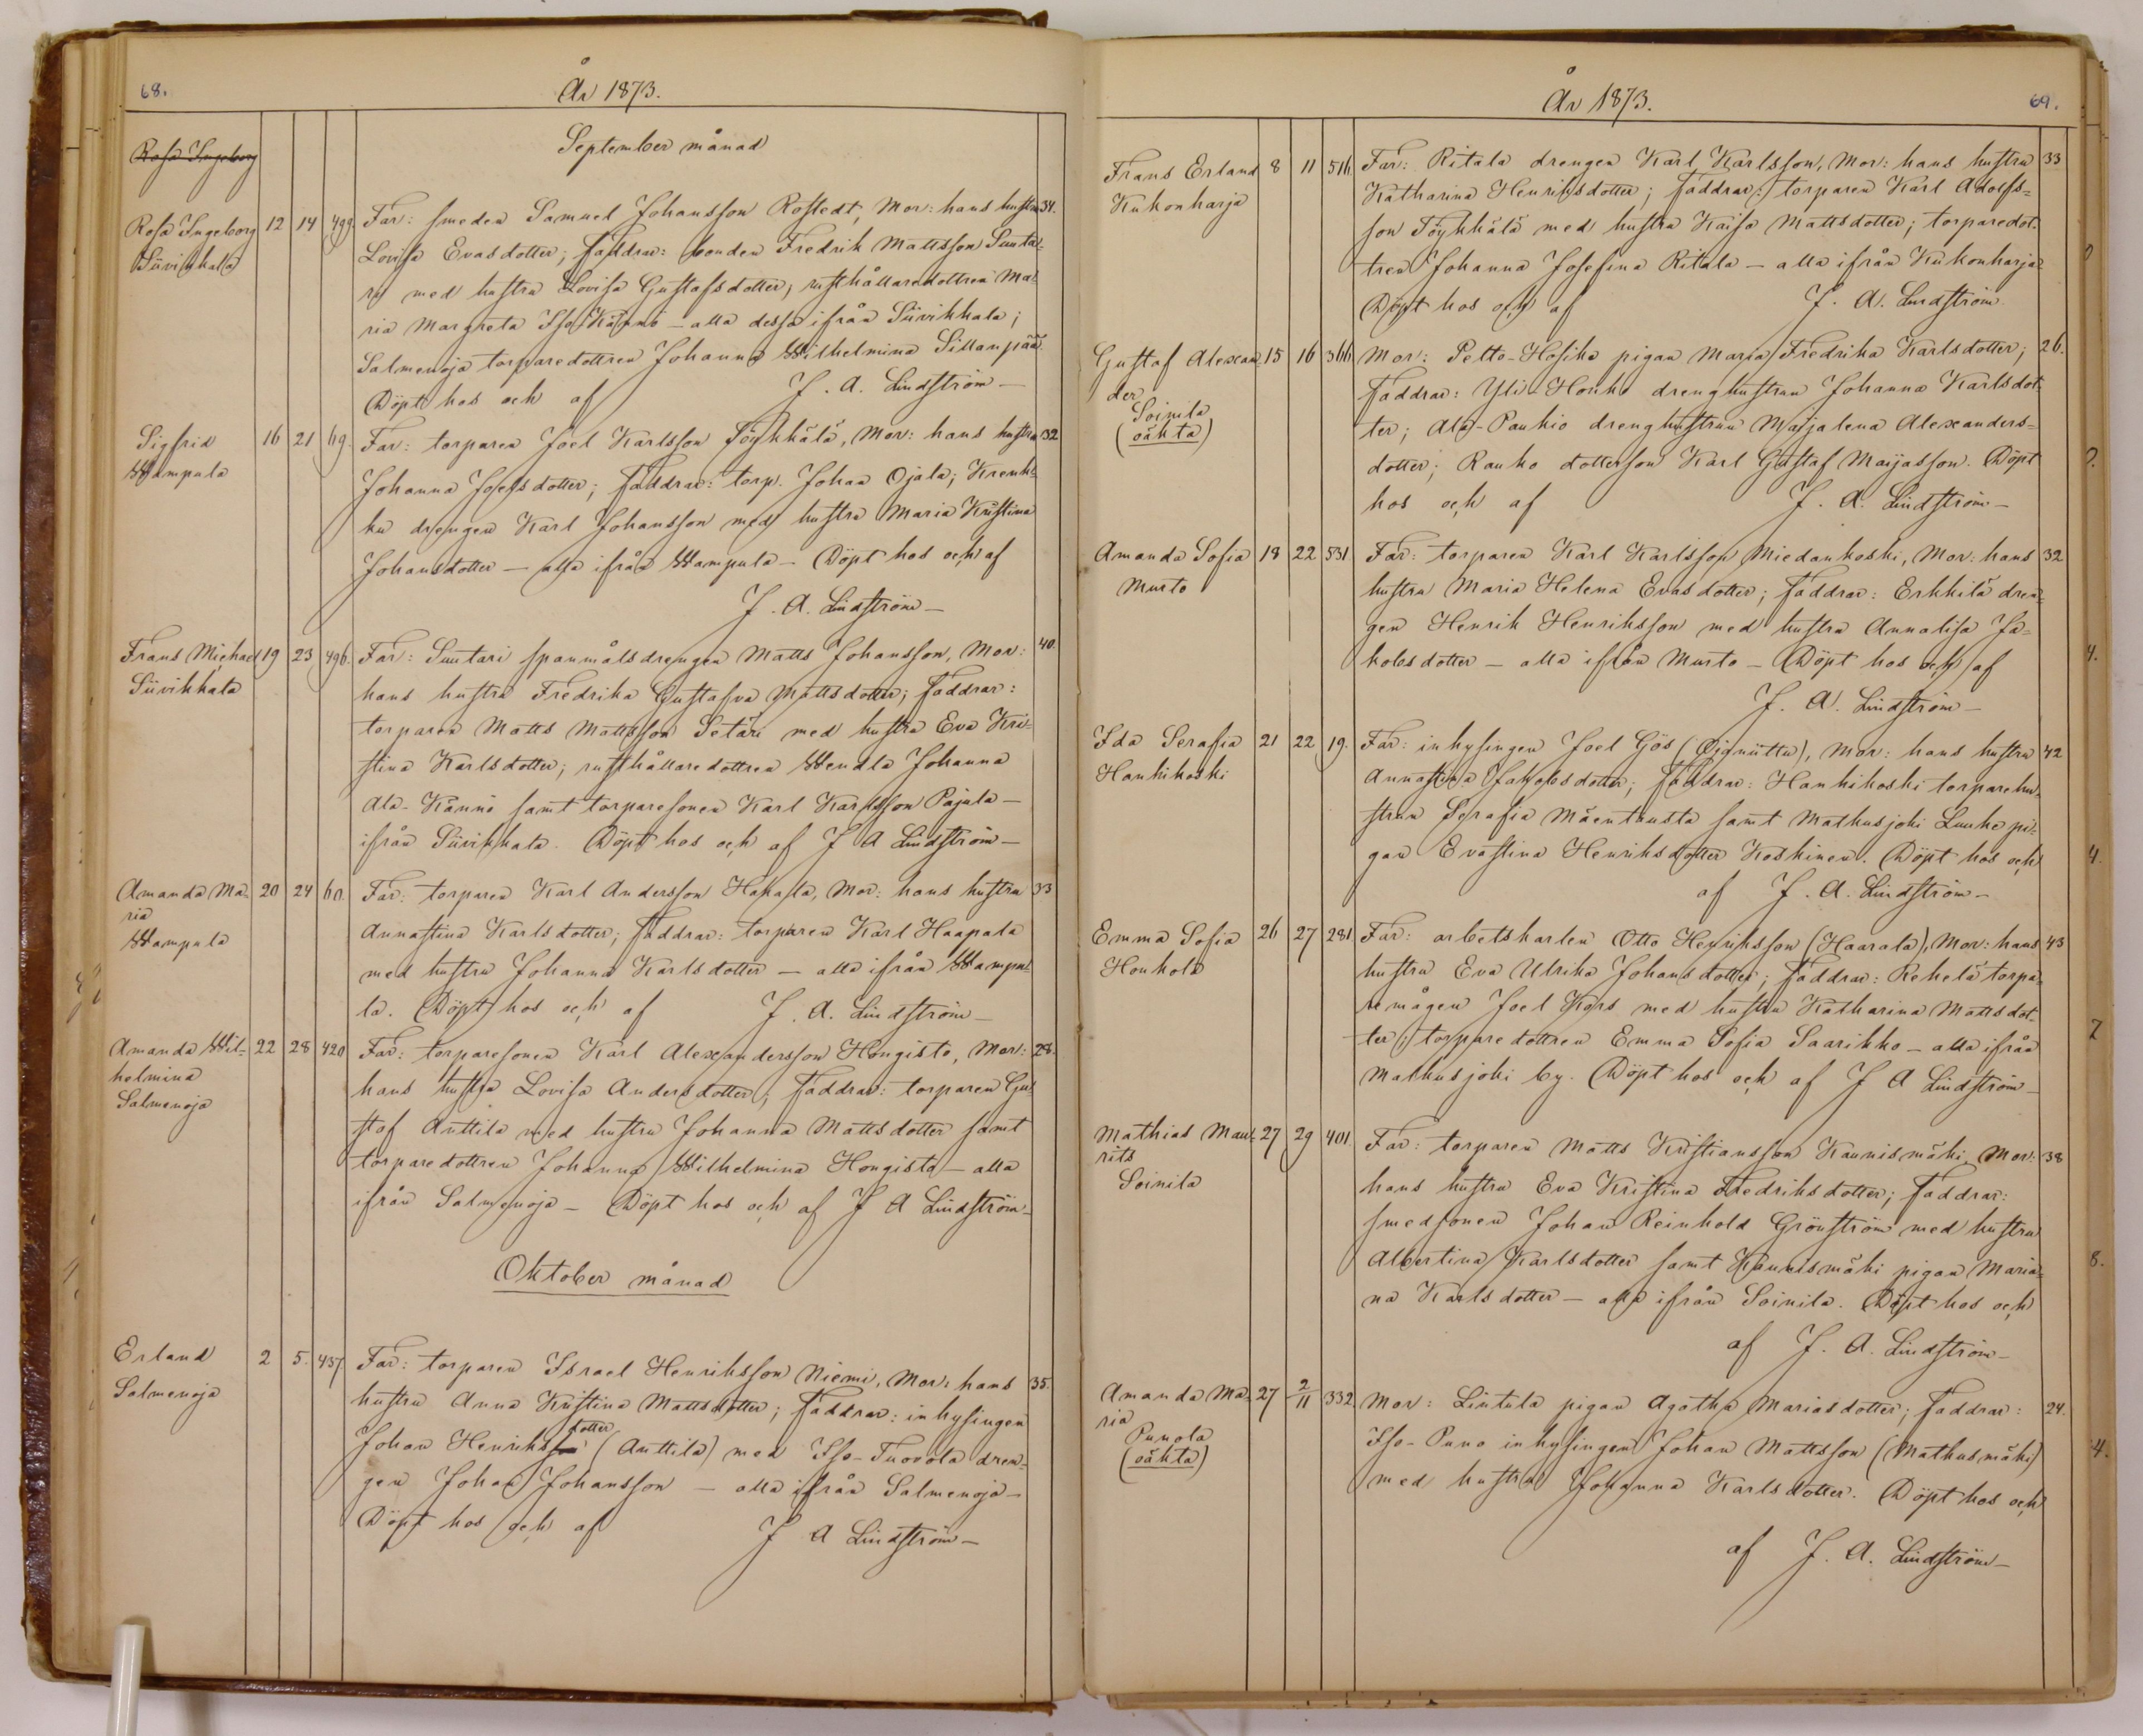 68.
År 1873.
September månad
Rosa Ingeborg
Rosa Ingeborg 12 14 499. Far: smeden Samuel Johansson Rostedt, Mor: hans hustru 34.
Siivikkala Lovisa Evasdotter; faddrar: bonden Fredrik Mattsson Sunta-
ri med hustru Lovisa Gustafsdotter, rusthållaredottren Ma-
ria Margreta Iso-Kännö – alla dessa ifrån Siivikkala;
Salmenoja torparedottren Johanna Wilhelmina Sillanpää.
Döpt hos och af J. A. Lindström –
Sigfrid 16 21 69. Far: torparen Joel Karlsson Töykkälä, Mor: hans hustru 32
Wampula Johanna Josefsdotter; faddrar: torp. Johan Ojala; Krenk-
ku drengen Karl Johansson med hustru Maria Kristina
Johansdotter – alla ifrån Wampula – Döpt hos och af
J. A. Lindström –
Frans Michael 19 23 496. Far: Suntari spanmålsdrengen Matts Johansson, Mor: 40.
Siivikkala hans hustru Fredrika Gustafva Mattsdotter; faddrar:
torparen Matts Mattsson Setäri med hustru Eva Kri-
stina Karlsdotter; rusthållaredottren Wendla Johanna
Ala-Kännö samt torparesonen Karl Karlsson Pajula –
ifrån Siivikkala. Döpt hos och af J A Lindström –
Amanda Ma- 20 24 60. Far: torparen Karl Andersson Hakala, Mor: hans hustru 33
ria Annastina Karlsdotter; faddrar: torparen Karl Haapala
Wampula med hustru Johanna Karlsdotter – alla ifrån Wampu-
la. Döpt hos och af J. A. Lindström –
Amanda Wil- 22 28 420 Far: torparesonen Karl Alexandersson Hongisto, Mor: 28.
helmina hans hustru Lovisa Andersdotter; faddrar: torparen Gu-
Salmenoja staf Anttila med hustru Johanna Mattsdotter samt
torparedottren Johanna Wilhelmina Hongisto – alla
ifrån Salmenoja – Döpt hos och af J A Lindström –
Oktober månad
Erland 2 5. 437. Far: torparen Israel Henriksson Niemi, Mor: hans 35.
Salmenoja hustru Anna Kristina Mattsdotter; faddrar: inhysingen
dotter
Johan Henriksson (Anttila) med Iso-Tuovola dren-
gen Johan Johansson – alla ifrån Salmenoja –
Döpt hos och af J A Lindström –
År 1873.
69.
Frans Erland 8 11 516. Far: Ritala drengen Karl Karlsson, Mor: hans hustru 33
Kukonharja Katharina Henriksdotter; faddrar: torparen Karl Adolfs-
son Töykkälä med hustru Kaisa Mattsdotter; torparedot-
tren Johanna Josefina Ritala – alla ifrån Kukonharja
Döpt hos och af J. A. Lindström
Gustaf Alexan- 15 16 366. Mor: Pelto-Hosika pigan Maria Fredrika Karlsdotter; 26.
der faddrar: Yli-Honko drenghustrun Johanna Karlsdot-
Soinila ter; Ala-Paukio drenghustrun Majalena Alexanders-
(oäkta) dotter; Rauko dotterson Karl Gustaf Maijasson. Döpt
hos och af J. A. Lindström –
Amanda Sofia 18 22 531 Far: torparen Karl Karlsson Miedankoski, Mor: hans 32
Murto hustru Maria Helena Evasdotter; faddrar: Erkkilä dren-
gen Henrik Henriksson med hustru Annalisa Ja-
kobsdotter – alla ifrån Murto – Döpt hos och af
J. A. Lindström –
Ida Serafia 21 22 19. Far: inhysingen Joel Gös (Ojaniittu), Mor: hans hustru 42
Hankikoski Annastina Jakobsdotter; faddrar: Hankikoski torparehu-
strun Serafia Mäentausta samt Matkusjoki Luuke pi-
gan Evastina Henriksdotter Koskinen. Döpt hos och
af J. A. Lindström –
Emma Sofia 26 27 281 Far: arbetskarlen Otto Henriksson (Haarala), Mor: hans 43
Honkola hustru Eva Ulrika Johansdotter; faddrar: Rekelä torpa-
remågen Joel Kors med hustru Katharina Mattsdot-
ter; torparedottren Emma Sofia Saarikko – alla ifrån
Matkusjoki by. Döpt hos och af J A Lindström –
Mathias Mau- 27 29 401. Far: torparen Matts Kristiansson Kaunismäki, Mor: 38
rits hans hustru Eva Kristina Fredriksdotter; faddrar:
Soinila smedsonen Johan Reinhold Grönström med hustru
Albertina Karlsdotter samt Kaunismäki pigan Maria-
na Karlsdotter – alla ifrån Soinila. Döpt hos och
af J. A. Lindström –
Amanda Ma- 27 2/11 332. Mor: Lintula pigan Agatha Mariasdotter; faddrar: 24.
ria Iso-Puno inhysingen Johan Mattsson (Matkusmäki)
Punola med hustru Johanna Karlsdotter. Döpt hos och
(oäkta)
af J. A. Lindström –